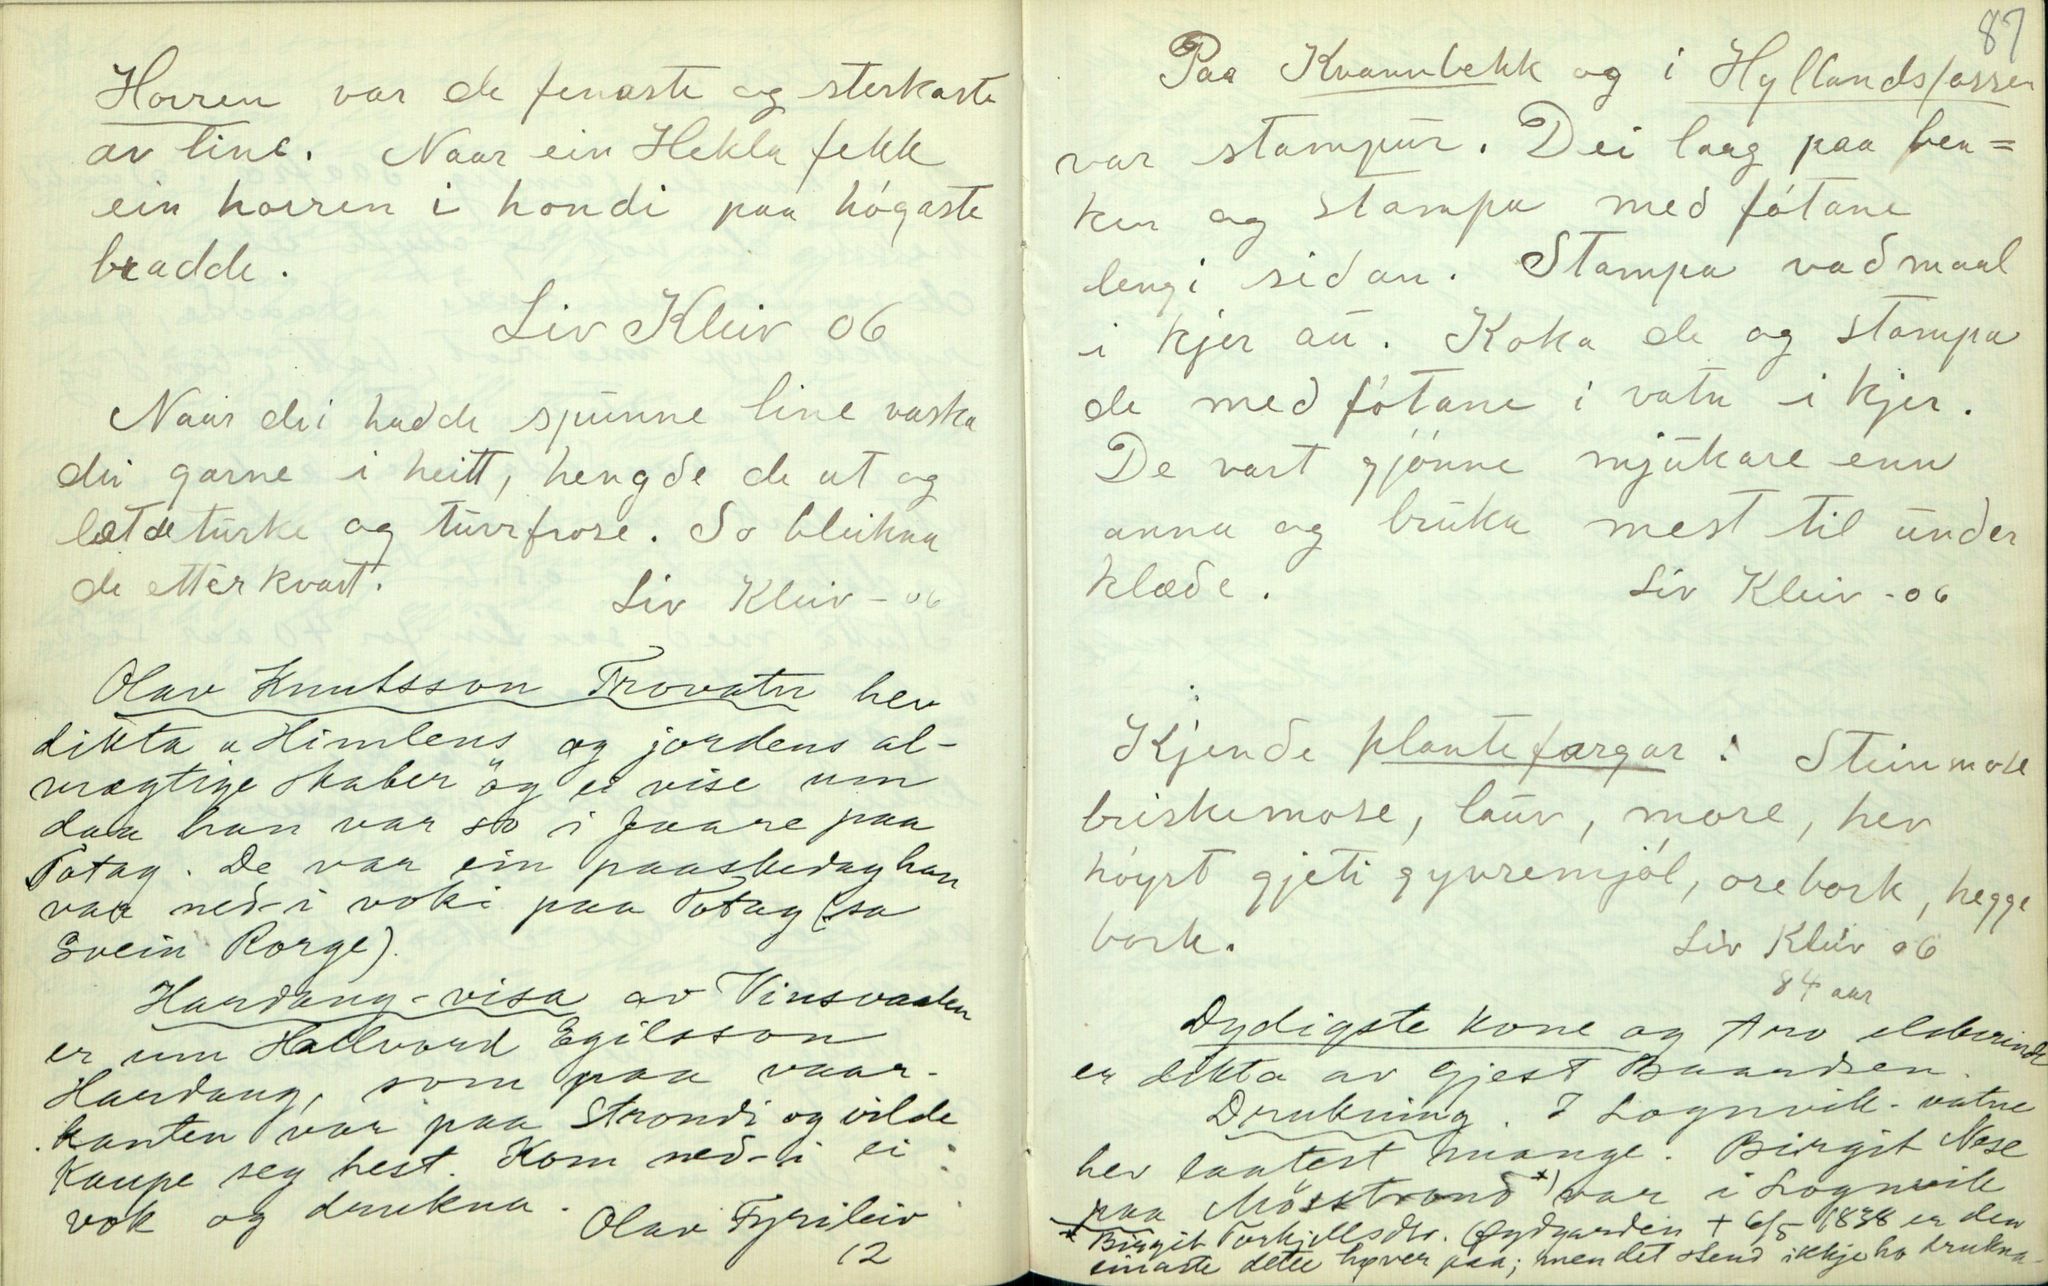 Horren var de fenaste og sterkaste
av line. Naar ein Hekla fekk
ein horren i hondi paa høgaste
bradde.
Liv Kleiv 06
Naar dei hadde spunne line vaska
dei garne i heitt, hengde de ut og
let de turke og turrfrose. So bleikna
de etterkvart.
Liv Kleiv - 06
Olav Knutsson Trovatn hev
dikta „Himlens og jordens al-
mægtige skaber" og ei vise um
daa han var so i faare paa
Totag. De var ein paaskedag han
var ned-i voki paa Totag (sa
Svein Rorge).
Hardang-visa av Vinsvaalen
er um Hallvord Egilsson
Hardang, som paa vaar-
kanten var paa Strondi og vilde
kaupe seg hest. Kom ned-i ei
vok og drukna.
Olav Fyrileiv
12
87
Paa Kvannbekk og i Hyllandsfossen
var stampur. Dei laag paa ben=
ker og stampa med føtane
lengi sidan. Stampa vadmaal
i kjer au. Koka de og stampa
de med føtane i vatn i kjer.
De vart gjønne mjukare enn
anna og bruka mest til under
klæde.
Liv Kleiv - 06
Kjende plantefærgar: Steinmose
briskemose, lauv, mose, hev
høyrt gjeti gyvremjøl, orebork, hegge
bork.
Liv Kleiv 06
84 aar
Dydigste kone og Aro elskerinde
er dikta av Gjest Baardsen.
Drukning. I Lognvik-vatne
hev laatest mange. Birgit Næse
paa Møsstrond *) var i Lognvik
* Birgit Torkjellsdtr. Øydgarden + 6/5 1838 er den
einaste dette høver paa; men det stend ikkje ho drukna.